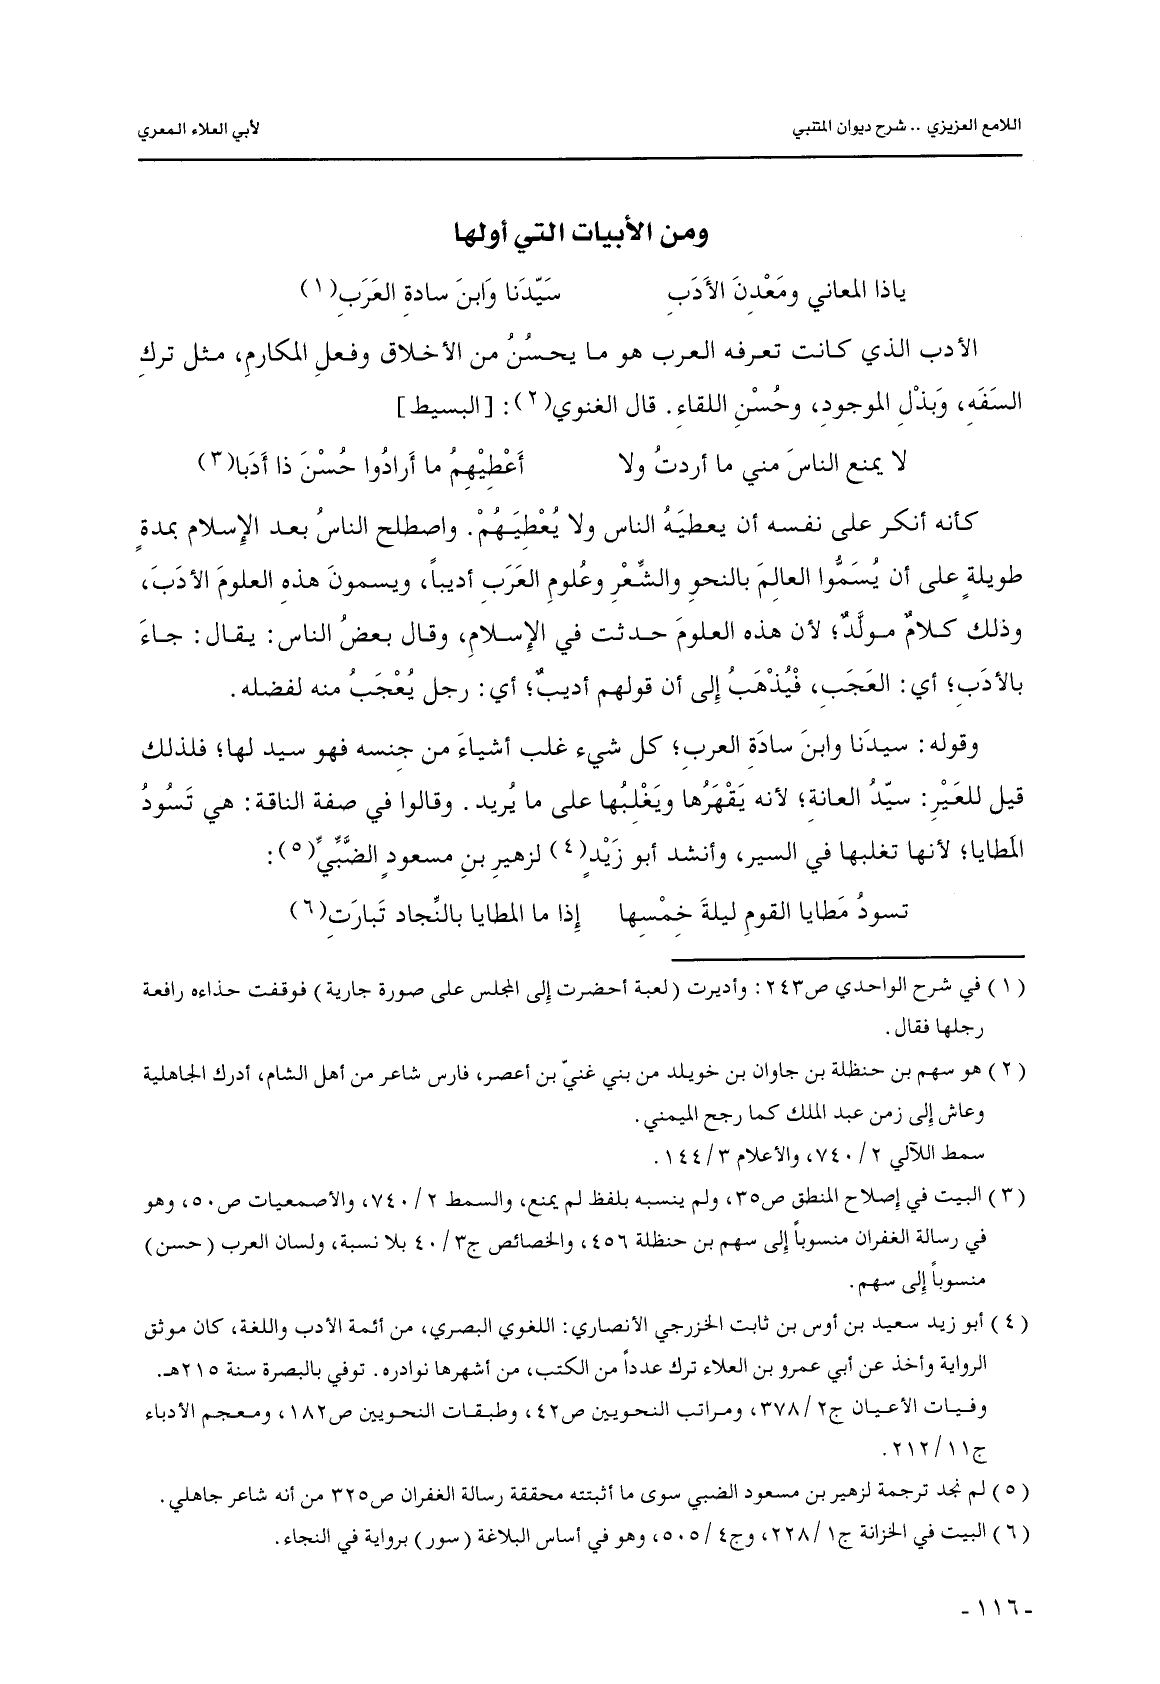 اللامع العزيزي .. شرح ديوان المتنبي
لأبي العلاء المعري
ومن الأبيات التي أولها
ياذا المعاني ومَعْدِنَ الأَدَبِ سَيِّدَنا وَابنَ سادةِ العَرَبِ(١)
الأدب الذي كانت تعرفه العرب هو ما يحسُنُ من الأخلاق وفعلِ المكارمِ، مثل تركِ
السَفَهِ، وَبَذْلِ الموجودِ، وحُسْنِ اللقاءِ. قال الغنوي(٢): [البسيط]
لا يمنع الناسَ مني ما أردتُ ولا أَعْطِيْهِمُ ما أَرادُوا حُسْنَ ذا أَدَبا(٣)
كأنه أنكر على نفسه أن يعطيَهُ الناس ولا يُعْطِيَهُمْ. واصطلح الناسُ بعد الإسلام بمدةٍ
طويلةٍ على أن يُسَمُّوا العالِمَ بالنحوِ والشِّعْرِ وعُلومِ العَرَبِ أديباً، ويسمونَ هذهِ العلومَ الأدَبَ،
وذلك كلامٌ مولَّدٌ؛ لأن هذه العلومَ حدثت في الإسلامِ، وقال بعضُ الناس: يقال: جاءَ
بالأدَبِ؛ أي: العَجَبِ، فْيُذْهَبُ إلى أن قولهم أديبٌ؛ أي: رجل يُعْجَبُ منه لفضله.
وقوله: سيدَنا وابنَ سادَةِ العربِ؛ كل شيء غلب أشياءَ من جنسه فهو سيد لها؛ فلذلك
قيل للعَيْرِ: سيّدُ العانةِ؛ لأنه يَقْهَرُها ويَغْلِبُها على ما يُريد. وقالوا في صفة الناقة: هي تَسُودُ
المَطايا؛ لأنها تغلبها في السير، وأنشد أبو زَيْدٍ(٤) لزهيرِ بنِ مسعودٍ الضَّبِّيِّ(٥):
تسودُ مَطايا القومِ ليلةَ خِمْسِها إذا ما المطايا بالنِّجاد تَبارَتِ(٦)
(١) في شرح الواحدي ص٢٤٣: وأديرت (لعبة أحضرت إلى المجلس على صورة جارية) فوقفت حذاءه رافعة
رجلها فقال.
(٢) هو سهم بن حنظلة بن جاوان بن خويلد من بني غنيّ بن أعصر، فارس شاعر من أهل الشام، أدرك الجاهلية
وعاش إلى زمن عبد الملك كما رجح الميمني.
سمط اللآلي ٢/ ٧٤٠، والأعلام ٣/ ١٤٤.
(٣) البيت في إصلاح المنطق ص٣٥، ولم ينسبه بلفظ لم يمنع، والسمط ٢/ ٧٤٠، والأصمعيات ص٥٠، وهو
في رسالة الغفران منسوباً إلى سهم بن حنظلة ٤٥٦، والخصائص ج٣/ ٤٠ بلا نسبة، ولسان العرب (حسن)
منسوباً إلى سهم.
(٤) أبو زيد سعيد بن أوس بن ثابت الخزرجي الأنصاري: اللغوي البصري، من أئمة الأدب واللغة، كان موثق
الرواية وأخذ عن أبي عمرو بن العلاء ترك عدداً من الكتب، من أشهرها نوادره. توفي بالبصرة سنة ٢١٥هـ.
وفيات الأعيان ج٢/ ٣٧٨، ومراتب النحويين ص٤٢، وطبقات النحويين ص١٨٢، ومعجم الأدباء
ج١١/ ٢١٢.
(٥) لم نجد ترجمة لزهير بن مسعود الضبي سوى ما أثبتته محققة رسالة الغفران ص٣٢٥ من أنه شاعر جاهلي.
(٦) البيت في الخزانة ج١/ ٢٢٨، وج٤/ ٥٠٥، وهو في أساس البلاغة (سور) برواية في النجاء.
- ١١٦ -